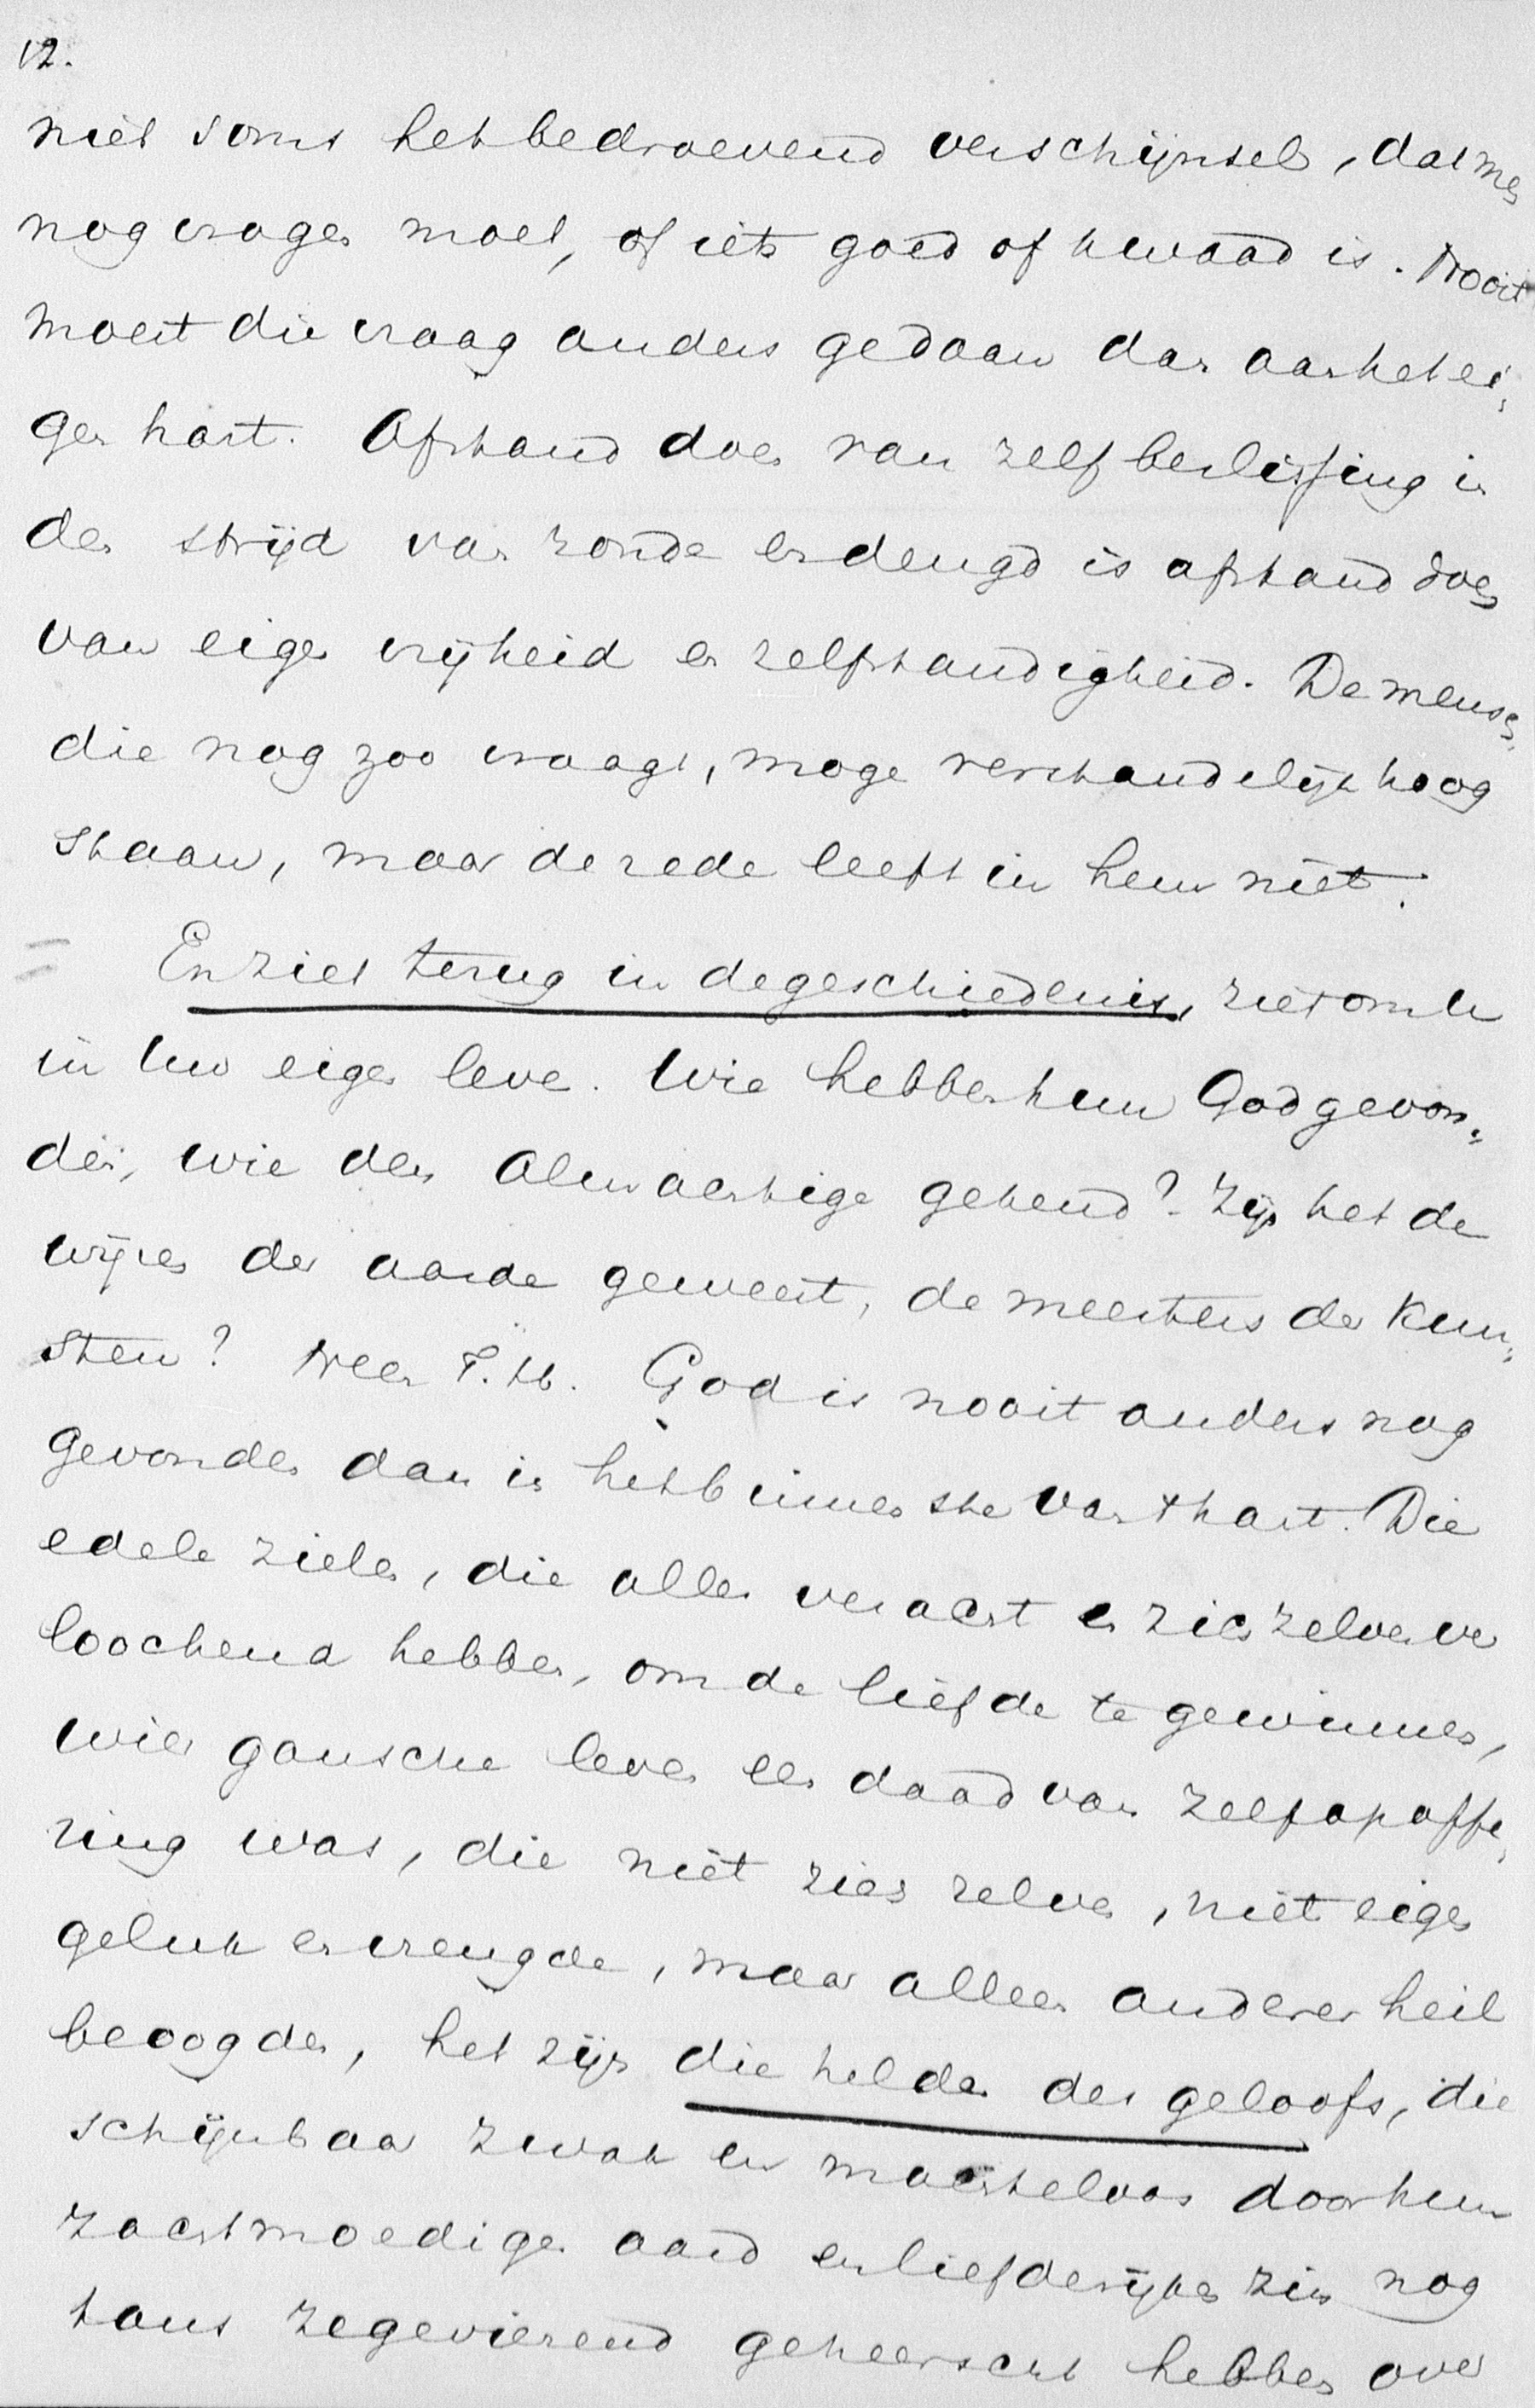 12.
niet soms het bedroevend verschijnsel, dat men
nog vragen moet, of iets goed of kwaad is. Nooit
moest die vraag anders gedaan dan aan het ei-
gen hart. Afstand doen van zelfbeslissing in
den strijd van zonde en deugd is afstand doen
van eigen vrijheid en zelfstandigheid. De mensch,
die nog zoo vraagt, moge verstandelijk hoog
staan, maar de rede leeft in hem niet.
En ziet terug in de geschiedenis, ziet om U
in Uw eigen leven. Wie hebben hun God gevon-
den, wie den Almachtige gekend? Zijn het de
wijzen der aarde geweest, de meesters der kun-
sten? Neen T.H. God is nooit anders nog
gevonden dan in het binnenste van 't hart. Die
edele zielen, die alles veracht en zich zelven ver
loochend hebben, om de liefde te gewinnen,
wier gansche leven een daad van zelfopoffe-
ring was, die niet zich zelven, niet eigen
geluk en vreugde, maar alleen anderer heil
beoogden, het zijn die helden des geloofs, die
schijnbaar zwak en machteloos door hun
zachtmoedigen aard en liefderijken zin nog
tans zegevierend geheerscht hebben over